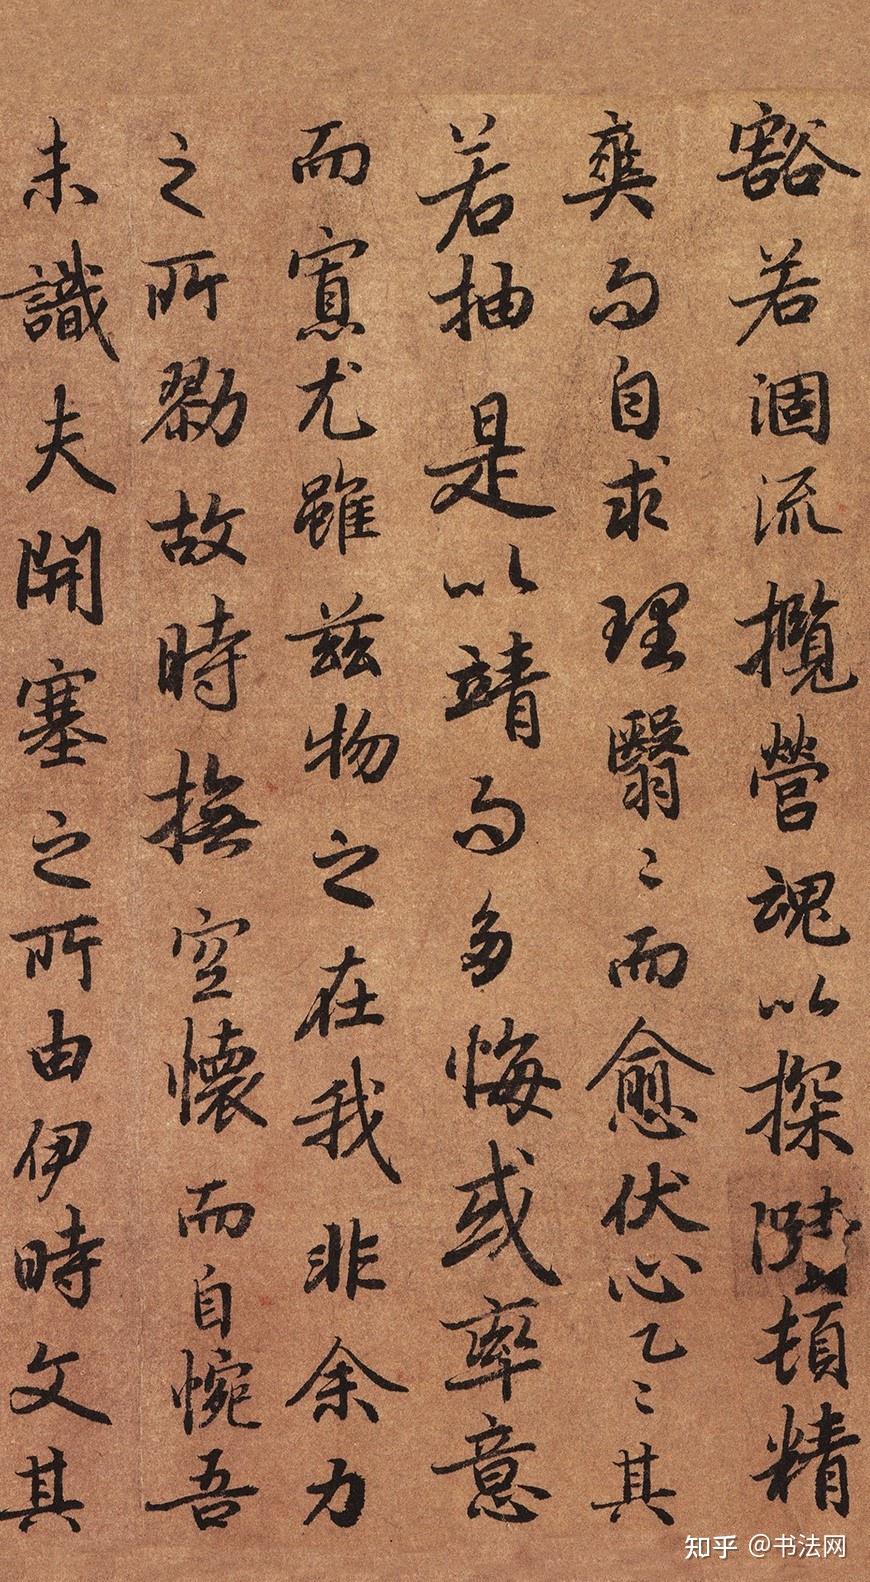 豁若涸流攬營魂以探頓精
爽而自求理翳〻而愈伏心乙〻其
若抽是以靖而多悔或率意
而寡尤雖茲物之在我非余力
之所勠故時撫空懷而自惋吾
未識夫開塞之所由伊時文其
知乎 @书法网